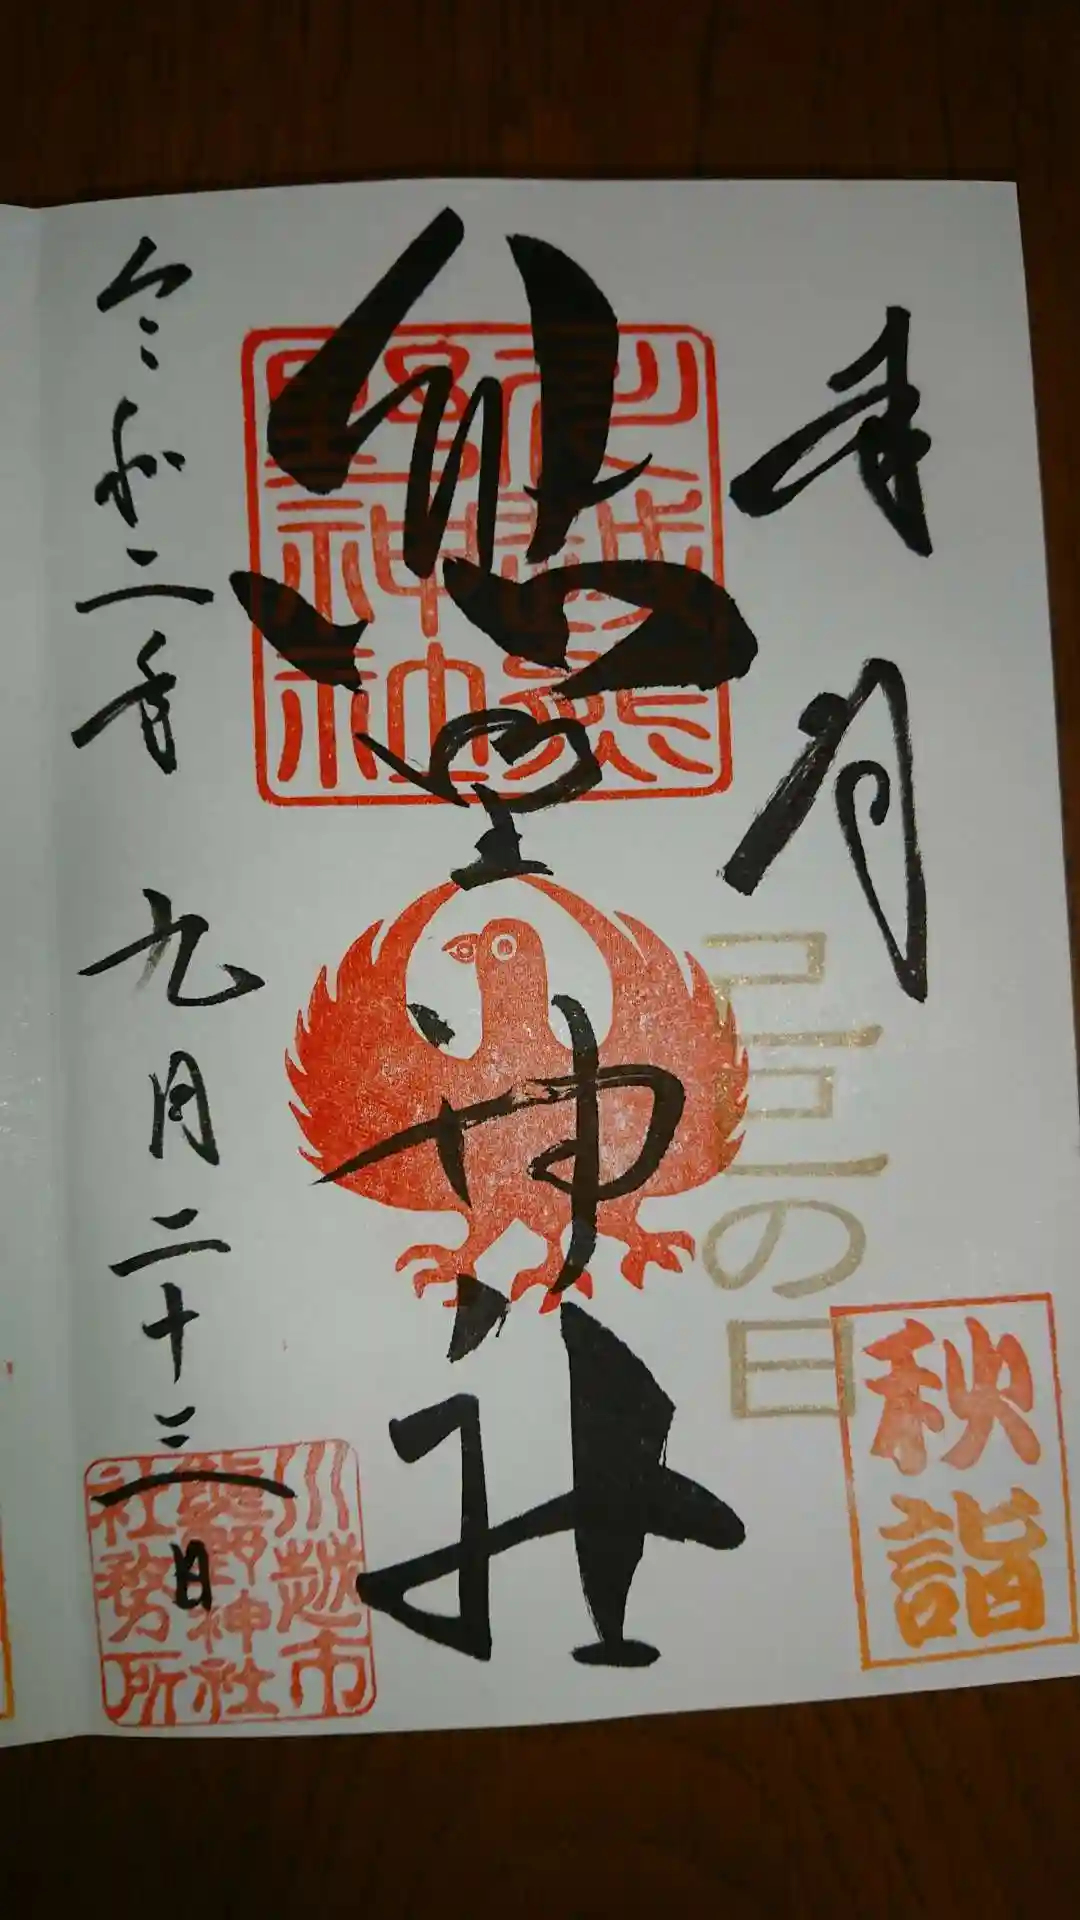 奉拝
己巳の日
秋詣
熊野神社
川越熊
野神社
令和二年九月二十三日
川越市
熊野神社
社務所